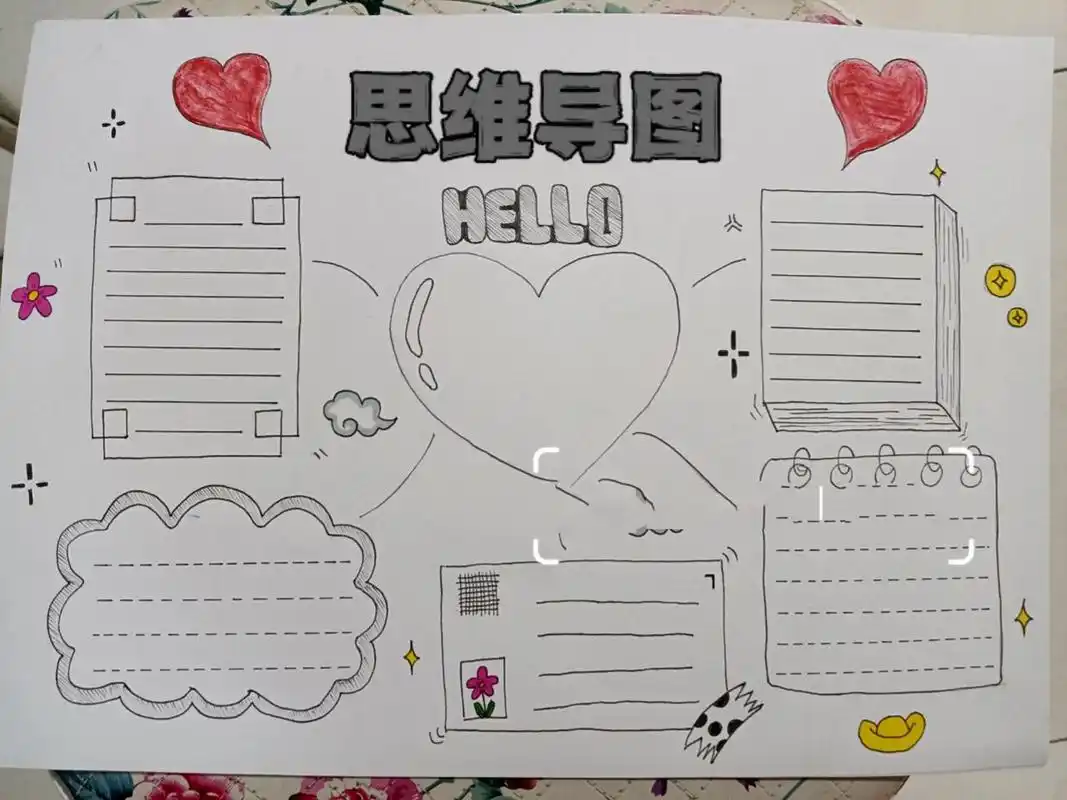 思维导图
HELLO